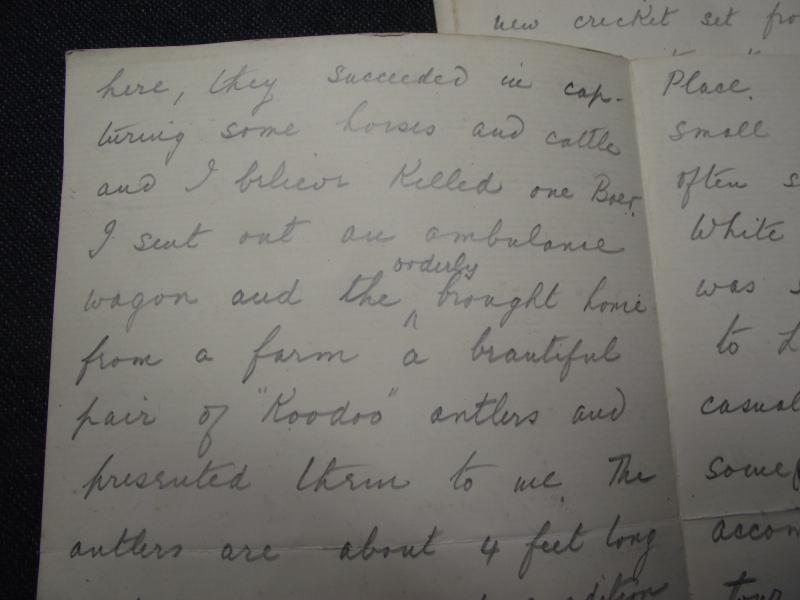 new cricket set
here, they succeeded in cap-
turing some horses and cattle
and I believe killed one Boer.
I sent out an ambulance
orderly
wagon and the ^ brought home
from a farm a beautiful
pair of "Koodoo" antlers and
presented them to me. The
antlers are about 4 feet long
Place.
small
often
White
was
to
casual
accom
tour